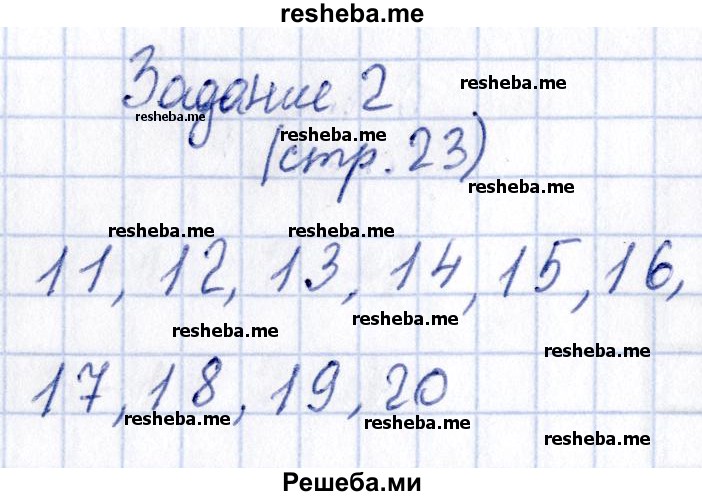 resheba.me
Задание 2
resheba.me
resheba.me
resheba.me
(стр. 23)
resheba.me
resheba.me
resheba.me
11, 12, 13, 14, 15, 16,
resheba.me
resheba.me
resheba.me
17, 18, 19, 20
resheba.me
resheba.me
resheba.me
Решеба.ми